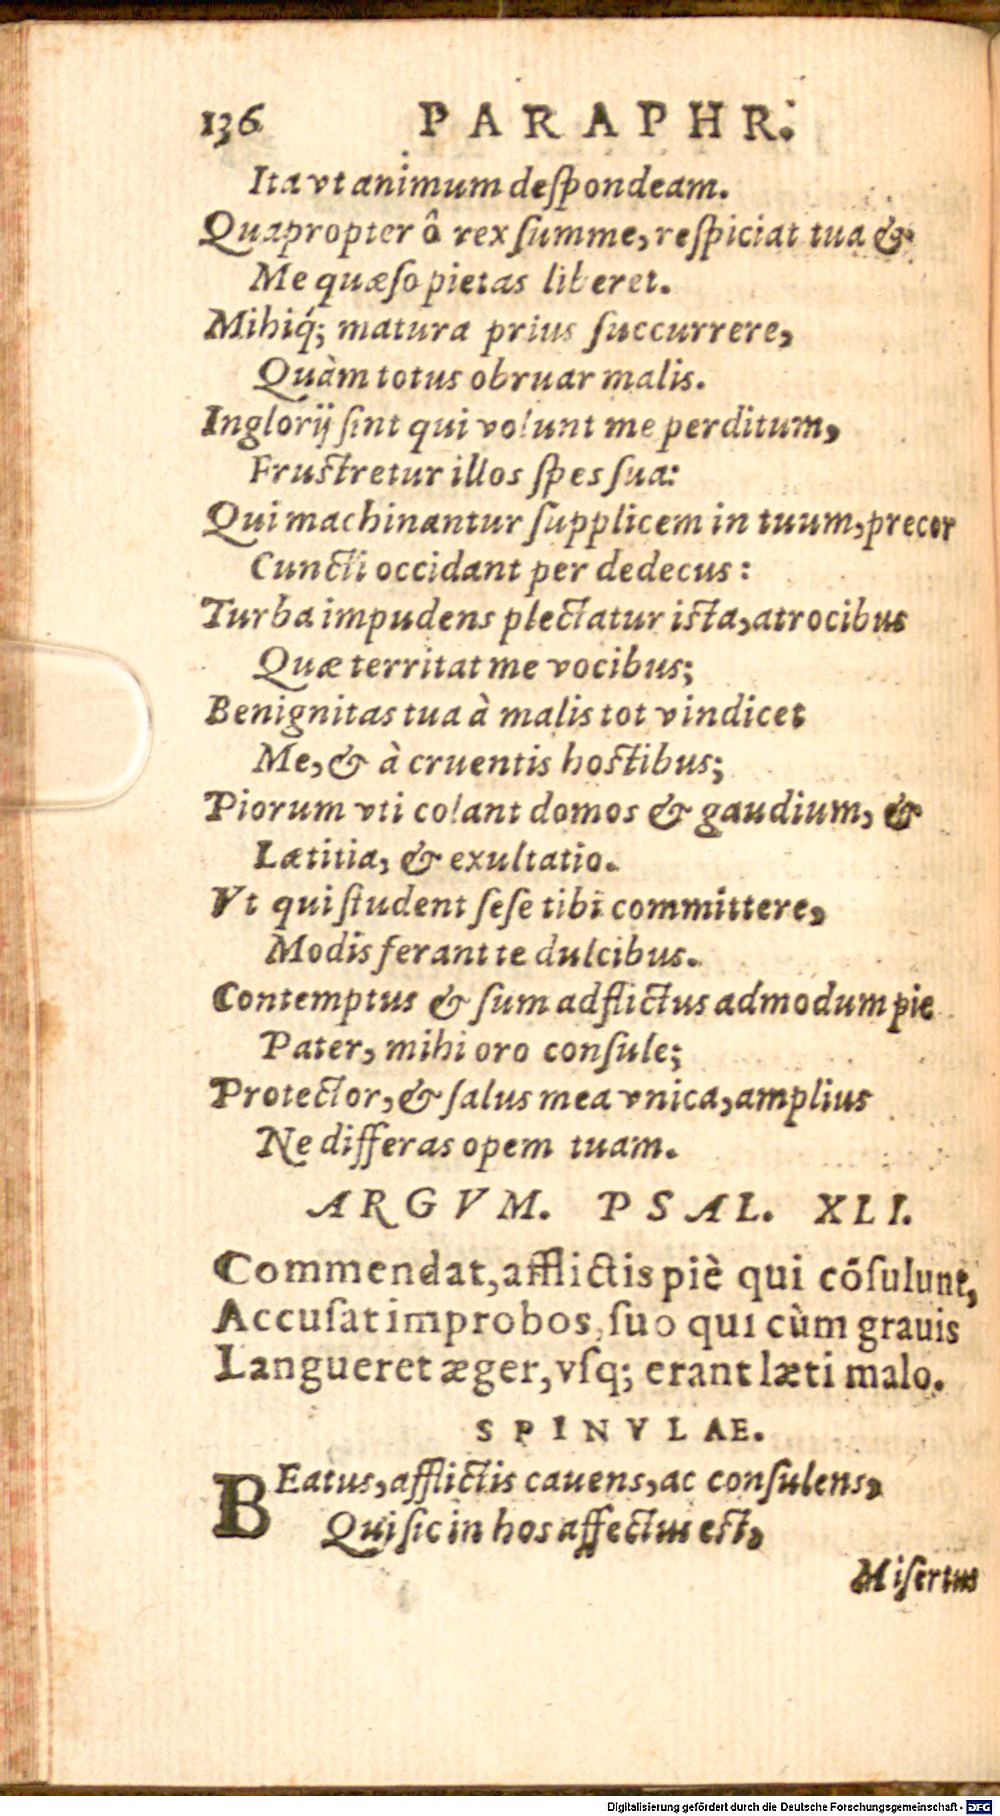 136 PARAPHR.
Ita vt animum deſpondeam.
Quapropter ô rex ſumme, reſpiciat tua &
Me quæſo pietas liberet.
Mihiq́; matura prius ſuccurrere,
Quàm totus obruar malis.
Inglorij ſint qui volunt me perditum,
Fruſtretur illos ſpes ſua:
Qui machinantur ſupplicem in tuum, precor
Cuncti occidant per dedecus:
Turba impudens plectatur iſta, atrocibus
Quæ territat me vocibus;
Benignitas tua à malis tot vindicet
Me, & à cruentis hoſtibus;
Piorum vti colant domos & gaudium, &
Lætitia, & exultatio.
Vt qui ſtudent ſeſe tibi committere,
Modis ferant te dulcibus.
Contemptus & ſum adflictus admodum pie
Pater, mihi oro conſule;
Protector, & ſalus mea vnica, amplius
Ne differas opem tuam.
ARGVM. PSAL. XLI.
Commendat, afflictis piè qui cōſulunt,
Accuſat improbos, ſuo qui cùm grauis
Langueret æger, vſq; erant læti malo.
SPINVLAE.
BEatus, afflictis cauens, ac conſulens,
Qui ſic in hos affectus eſt,
Miſertus
Digitalisierung gefördert durch die Deutsche Forschungsgemeinschaft - DFG